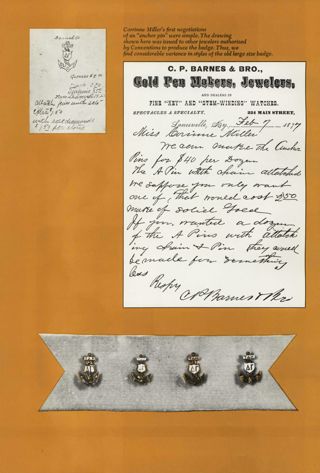 Corinne Miller's first negotiations
of an "anchor pin" were simple. The drawing
shown here was issued to other jewelers authorized
by Conventions to produce the badge. Thus, we
find considerable variance in styles of the old large size badge.
C. P. BARNES & BRO.,
Gold Pen Makers, Jewelers,
AND DEALERS IN
FINE "KEY" AND "STEM-WINDING" WATCHES.
SPECTACLES A SPECIALTY. 224 MAIN STREET,
Louisville, Ky. Feb 7 1879
Miss Corinne Miller
We can make the Anchor
Pins for $40 per Dozen
the A Pin with chain attatched
We suppose you only want
one of, that would cost
made of Solid Gold
If you wanted a dozen
of the A Pins with attatch
ing Chain & Pin they would
be made for something
less
Respy
C P Barnes & Bro